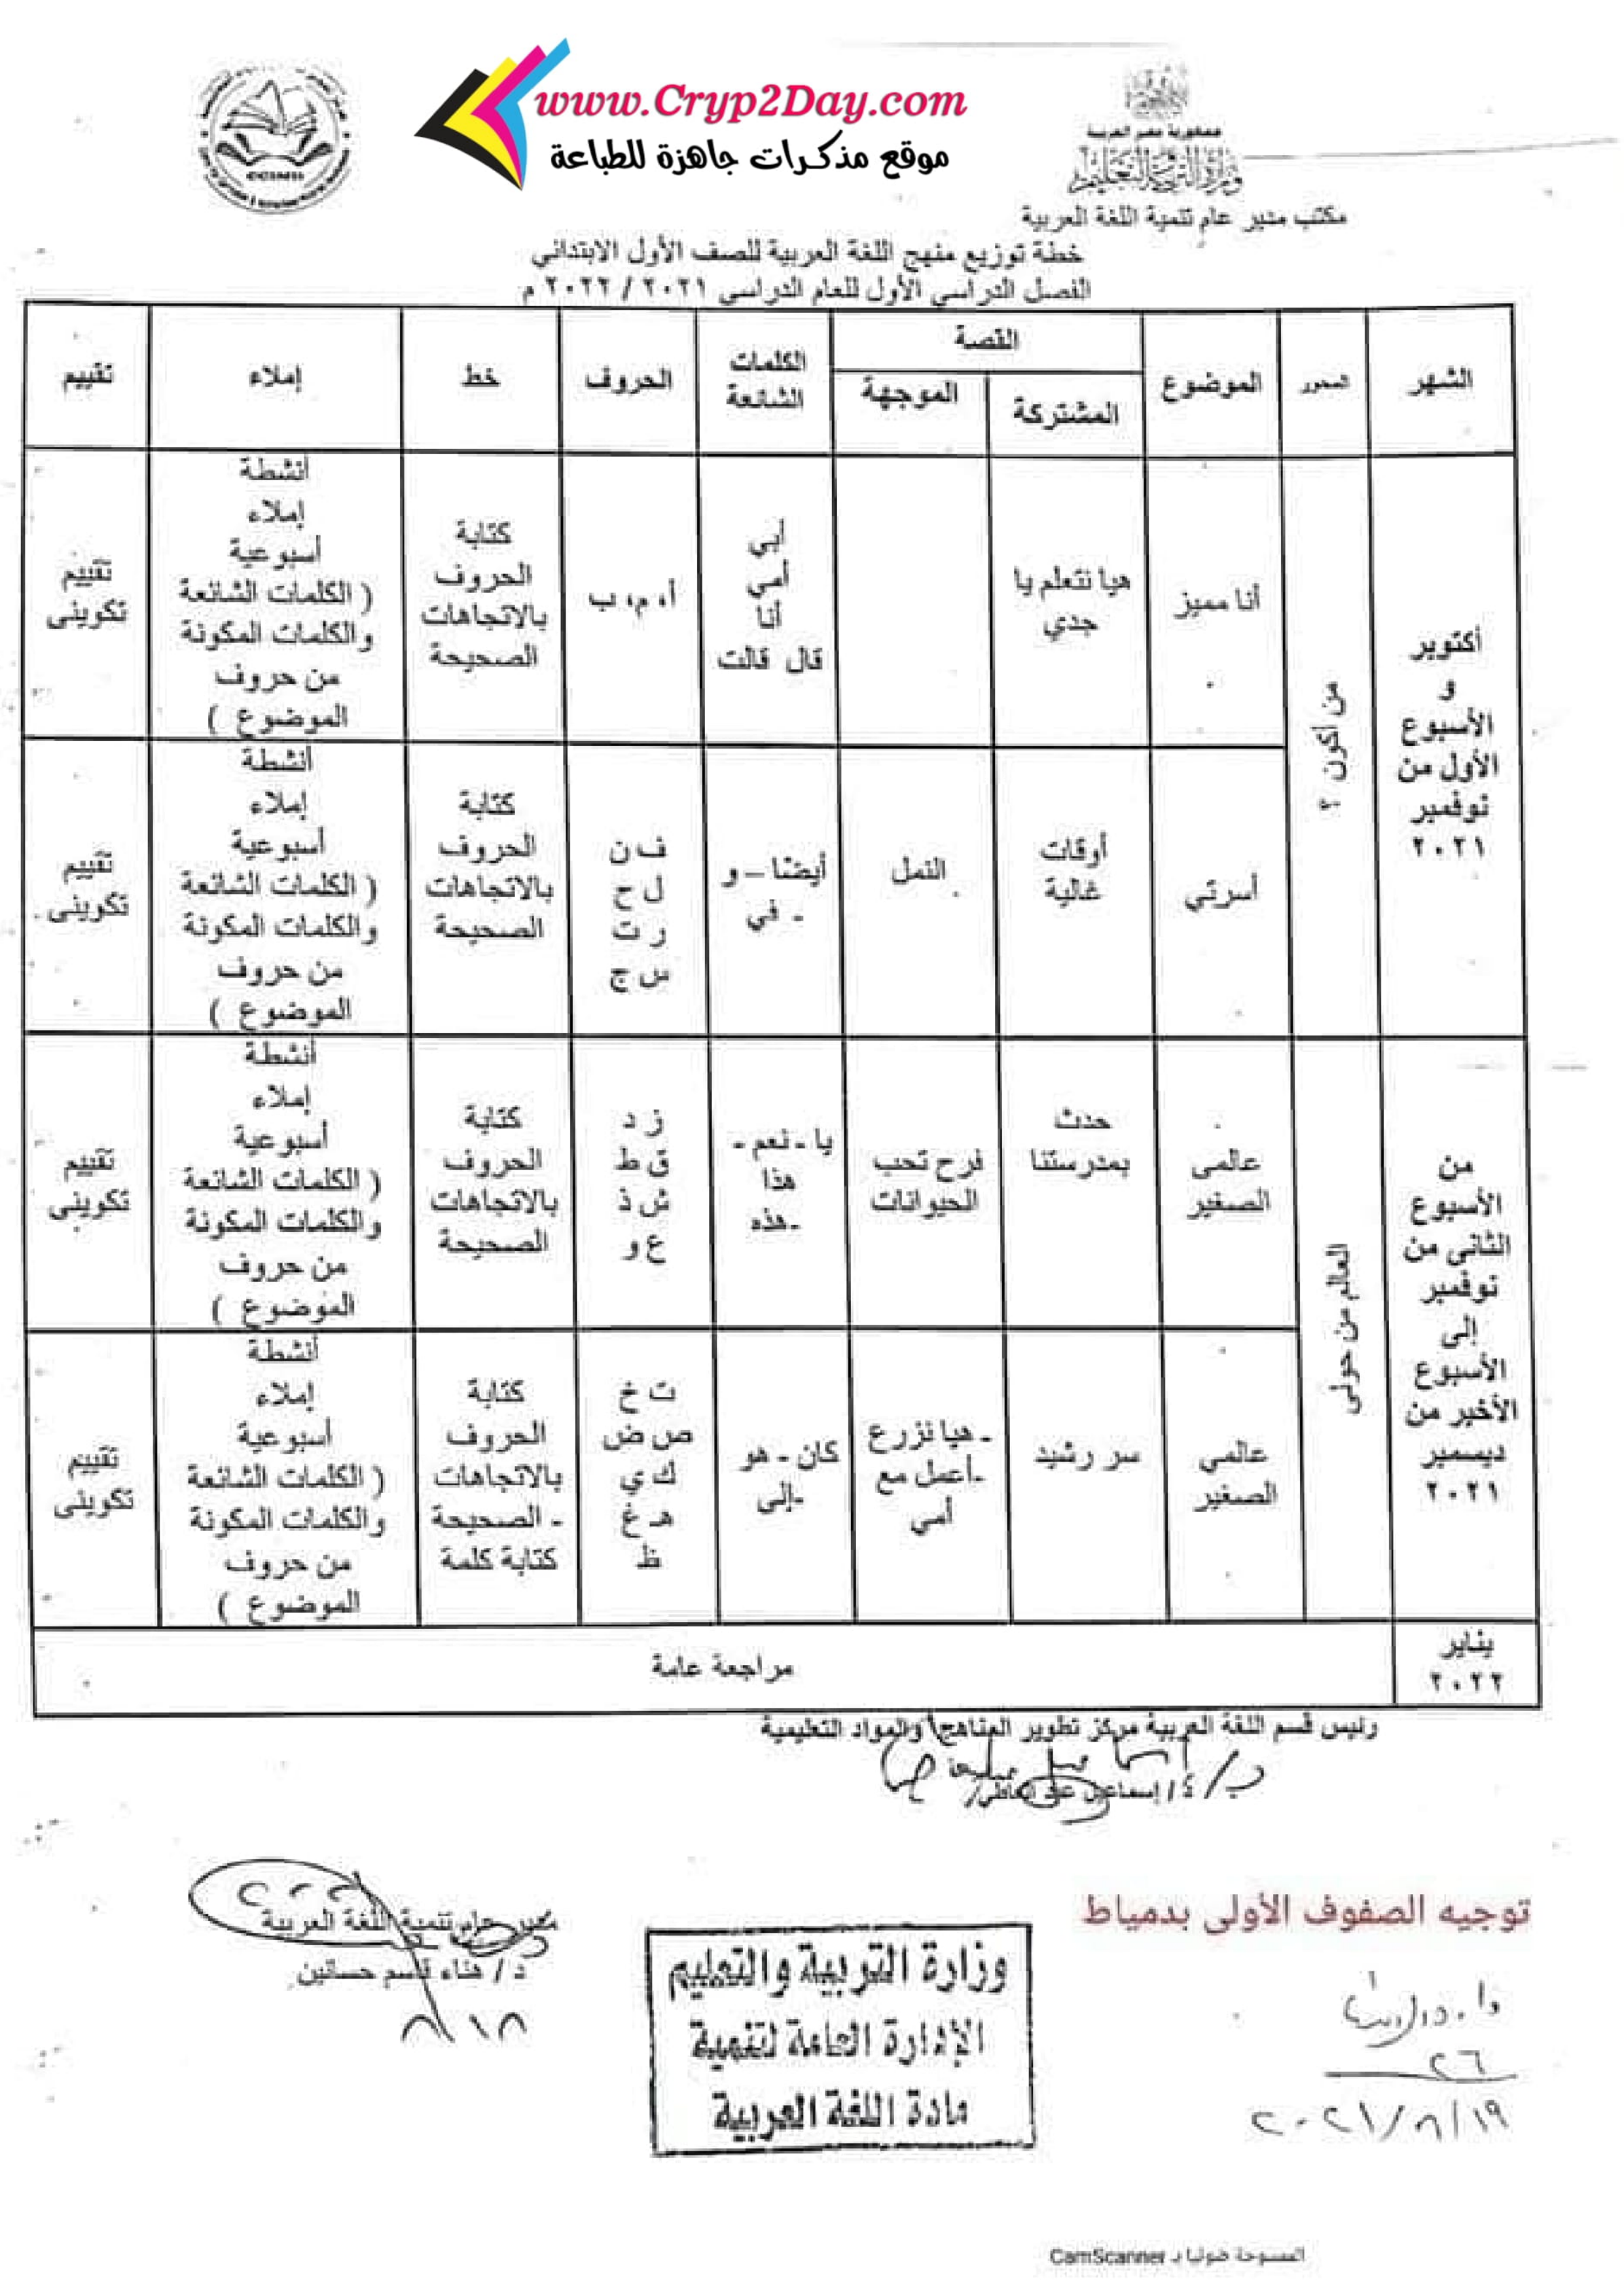 www.Cryp2Day.com
موقع مذكرات جاهزة للطباعة
جمهورية مصر العربية
وزارة التربية والتعليم
مكتب مدير عام تنمية اللغة العربية
خطة توزيع منهج اللغة العربية للصف الأول الابتدائي
الفصل الدراسي الأول للعام الدراسي ٢٠٢١ / ٢٠٢٢ م
الشهر
المحور
الموضوع
القصة
المشتركة
الموجهة
الكلمات
الشائعة
الحروف
خط
إملاء
تقييم
أكتوبر
و
الأسبوع
الأول من
نوفمبر
٢٠٢١
من أكون ؟
أنا مميز
هيا نتعلم يا
جدي
أبي
أمي
أنا
قال قالت
أ، م، ب
كتابة
الحروف
بالاتجاهات
الصحيحة
أنشطة
إملاء
أسبوعية
( الكلمات الشائعة
والكلمات المكونة
من حروف
الموضوع )
تقييم
تكوينى
أسرتي
أوقات
غالية
النمل
أيضا - و
- في
ف ن
ل ح
ر ت
س ج
كتابة
الحروف
بالاتجاهات
الصحيحة
أنشطة
إملاء
أسبوعية
( الكلمات الشائعة
والكلمات المكونة
من حروف
الموضوع )
تقييم
تكوينى
من
الأسبوع
الثانى من
نوفمبر
إلى
الأسبوع
الأخير من
ديسمبر
٢٠٢١
العالم من حولى
عالمى
الصغير
حدث
بمدرستنا
فرح تحب
الحيوانات
يا - نعم -
هذا
-هذه
ز د
ق ط
ش ذ
ع و
كتابة
الحروف
بالاتجاهات
الصحيحة
أنشطة
إملاء
أسبوعية
( الكلمات الشائعة
والكلمات المكونة
من حروف
الموضوع )
تقييم
تكوينى
عالمي
الصغير
سر رشيد
- هيا نزرع
-أعمل مع
أمي
كان - هو
-إلى
ث خ
ص ض
ك ي
هـ غ
ظ
كتابة
الحروف
بالاتجاهات
الصحيحة -
كتابة كلمة
أنشطة
إملاء
أسبوعية
( الكلمات الشائعة
والكلمات المكونة
من حروف
الموضوع )
تقييم
تكوينى
يناير
٢٠٢٢
مراجعة عامة
رئيس قسم اللغة العربية مركز تطوير المناهج والمواد التعليمية
أ / إسماعيل عبد العاطي
مدير عام تنمية اللغة العربية
د / هناء قاسم حسانين
٨/١٨
وزارة التربية والتعليم
الإدارة العامة لتنمية
مادة اللغة العربية
توجيه الصفوف الأولى بدمياط
٢٦
٢٠٢١/٨/١٩
الممسوحة ضوئيا بـ CamScanner